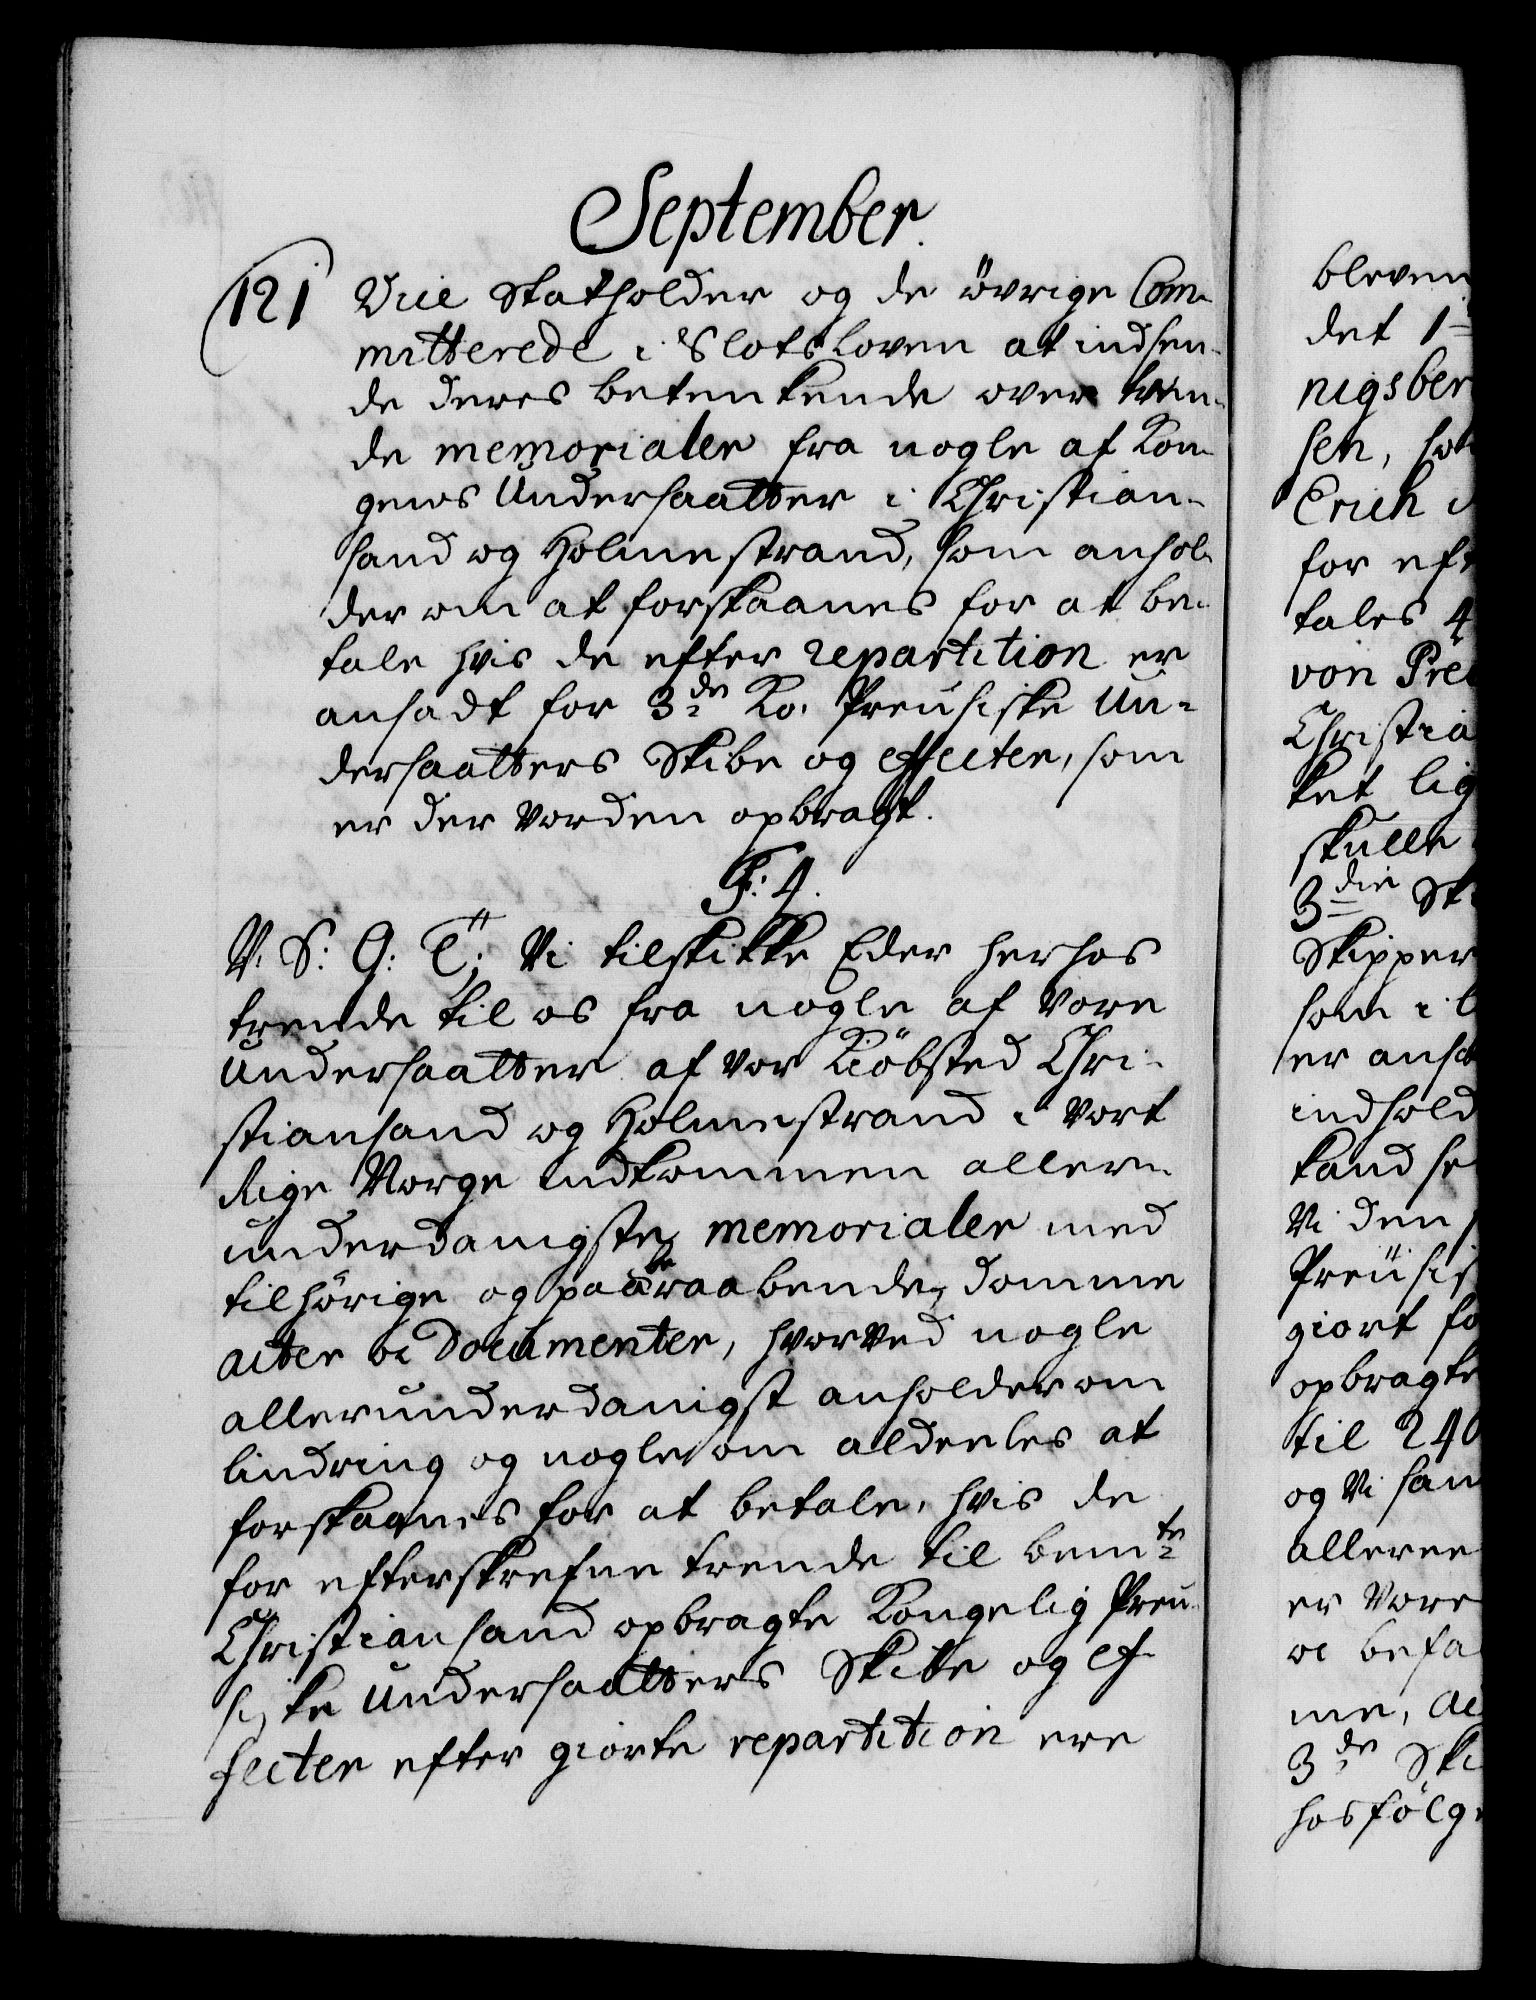 September.
121 Vice Statholder og de övrige Com-
mitterede i Slotsloven at indsen-
de deres betenkende over tven-
de memorialer fra nogle af Kon-
gens Undersaatter i Christian-
sand og Holmestrand, som anhol-
der om at forskaanes for at be-
tale hvis de efter repartition er
ansadt for 3de Ko. Preusiske Un-
dersaatters Skibe og effecter, som
er der vorden opbragt.
F: 4.
V. S: G: T; Vi tilskikke Eder herhos
trende til os fra nogle af vore
Undersaatter af vor Kiöbsted Chri-
stiansand og Holmestrand i vort
Rige Norge indkommen aller-
underdanigste memorialer med
tilhörige og paaberaabende domme
acter oc Documenter, hvorved nogle
allerunderdanigst anholder om
lindring og nogle om aldeeles at
forskaanes for at betale, hvis de
for efterskrefne trende til bemte
Christiansand opbragte Kongelig Preu-
siske Undersaatters Skibe og ef-
fecter efter giorte repartition ere
bleven
det 1
nigsber
sen,
Erich
for eft
tales 4
von Pre
Christia
ket lig
skulle
3die Sk
Skipper
som i
er ansa
indhold
kand se
Vi den
Preusis
giort fo
opbragte
til 240
og Vi han
alleree
er Vore
oc befa
me, ac
3de Ski
hosfölg